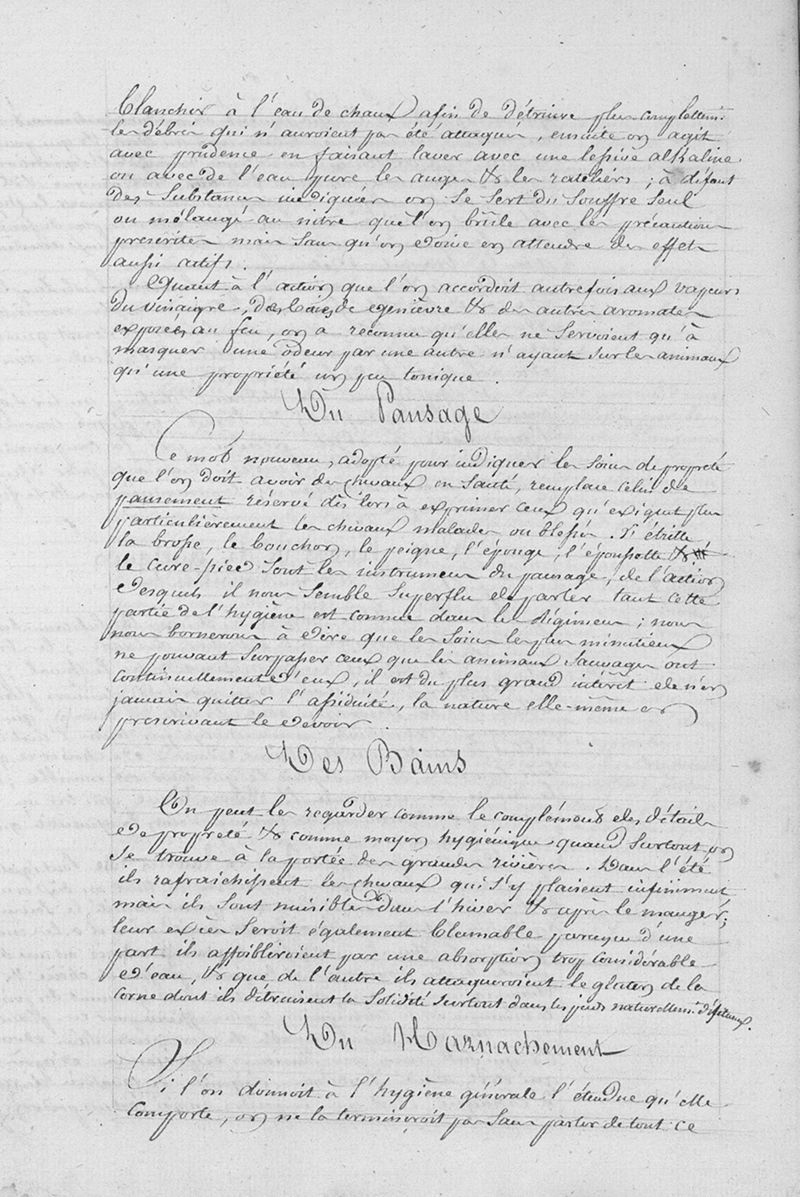 blanchir à l'eau de chaux afin de détruire plus complettem.t
les débris qui n'auroient pas été attaqués, ensuite on agit
avec prudence en faisant laver avec une lessive alkaline
ou avec de l'eau pure les auges & les rateliers ; à défaut
des substances indiquées on se sert du souffre seul
ou mélangé au nitre que l'on brûle avec les précautions
prescrites mais sans qu'on doive en attendre des effets
aussi actifs.
Quant à l'action que l'on accordoit autrefois aux vapeurs
du vinaigre, des baies de genièvre & des autres aromates
exposées au feu, on a reconnu qu'elles ne servoient qu'à
masquer une odeur par une autre n'ayant sur les animaux
qu'une propriété un peu tonique.
Du Pansage
Ce mot nouveau, adopté pour indiquer les soins de propreté
que l'on doit avoir des chevaux en santé, remplace celui de
pansement réservé dès lors à exprimer ceux qu'exigent plus
particulièrement les chevaux malades ou blessés. L'étrille
la brosse, le bouchon, le peigne, l'éponge, l'époussette &
le cure-pied sont les instrumens du pansage, de l'action
desquels il nous semble superflu de parler tant cette
partie de l'hygiène est connue dans les Régimens ; nous
nous bornerons à dire que les soins les plus minutieux
ne pouvant surpasser ceux que les animaux sauvages ont
continuellement d'eux, il est du plus grand intérêt de n'en
jamais quitter l'assiduité, la nature elle-même en
prescrivant le devoir.
Des Bains
On peut les regarder comme le complément des détails
de propreté & comme moyen hygiénique quand surtout on
se trouve à la portée des grandes rivières. Dans l'été
ils rafraichissent les chevaux qui s'y plaisent infiniment
mais ils sont nuisibles dans l'hiver & après le manger ;
leur excès seroit également blamable parceque d'une
part ils affoibliroient par une absorption trop considérable
d'eau, & que de l'autre ils attaqueroient le gluten de la
corne dont ils détruisent la solidité surtout dans les pieds naturellem.t défectueux.
Du Harnachement
Si l'on donnoit à l'hygiène générale l'étendue qu'elle
comporte, on ne la termineroit pas sans parler de tout ce